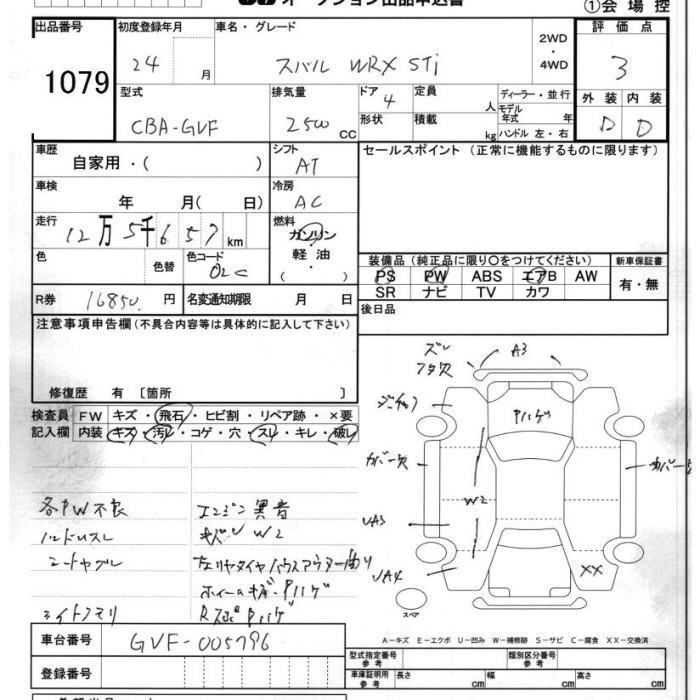 ①会場控
出品番号
1079
初度登録年月
24 月
車名・グレード
スバル WRX STi
2WD
・
4WD
評価点
3
外装 内装
D D
型式
CBA-GVF
排気量
2500 cc
ドア
4
形状
定員
人
積載
kg
ディーラー・並行
モデル
年式 年
ハンドル 左・右
車歴
自家用・( )
シフト
AT
セールスポイント (正常に機能するものに限ります)
車検
年 月( 日)
冷房
AC
走行
12万5千657km
燃料
ガソリン
・
軽油
・
( )
色
色替
色コード
02C
装備品(純正品に限り○をつけてください)
PS PW ABS エアB AW
SR ナビ TV カワ
新車保証書
有・無
R券 16850 円
名変通知期限 月 日
後日品
注意事項申告欄(不具合内容等は具体的に記入して下さい)
修復歴 有 〔箇所 〕
検査員
記入欄
FW キズ・飛石・ヒビ割・リペア跡・×要
内装 キズ・汚レ・コゲ・穴・スレ・キレ・破レ
各PW不良
ハンドルスレ
エンジン異音
W2
ライトクモリ
ズレ
フタ欠
A3
カバー欠
Pハゲ
W2
UA3
UA4
XX
スペア
A−キズ E−エクボ U−凹み W−補修跡 S−サビ C−腐食 XX−交換済
車台番号
GVF-005796
登録番号
型式指定番号
参考
類別区分番号
参考
車庫証明用
参考
長さ cm
幅 cm
高さ cm